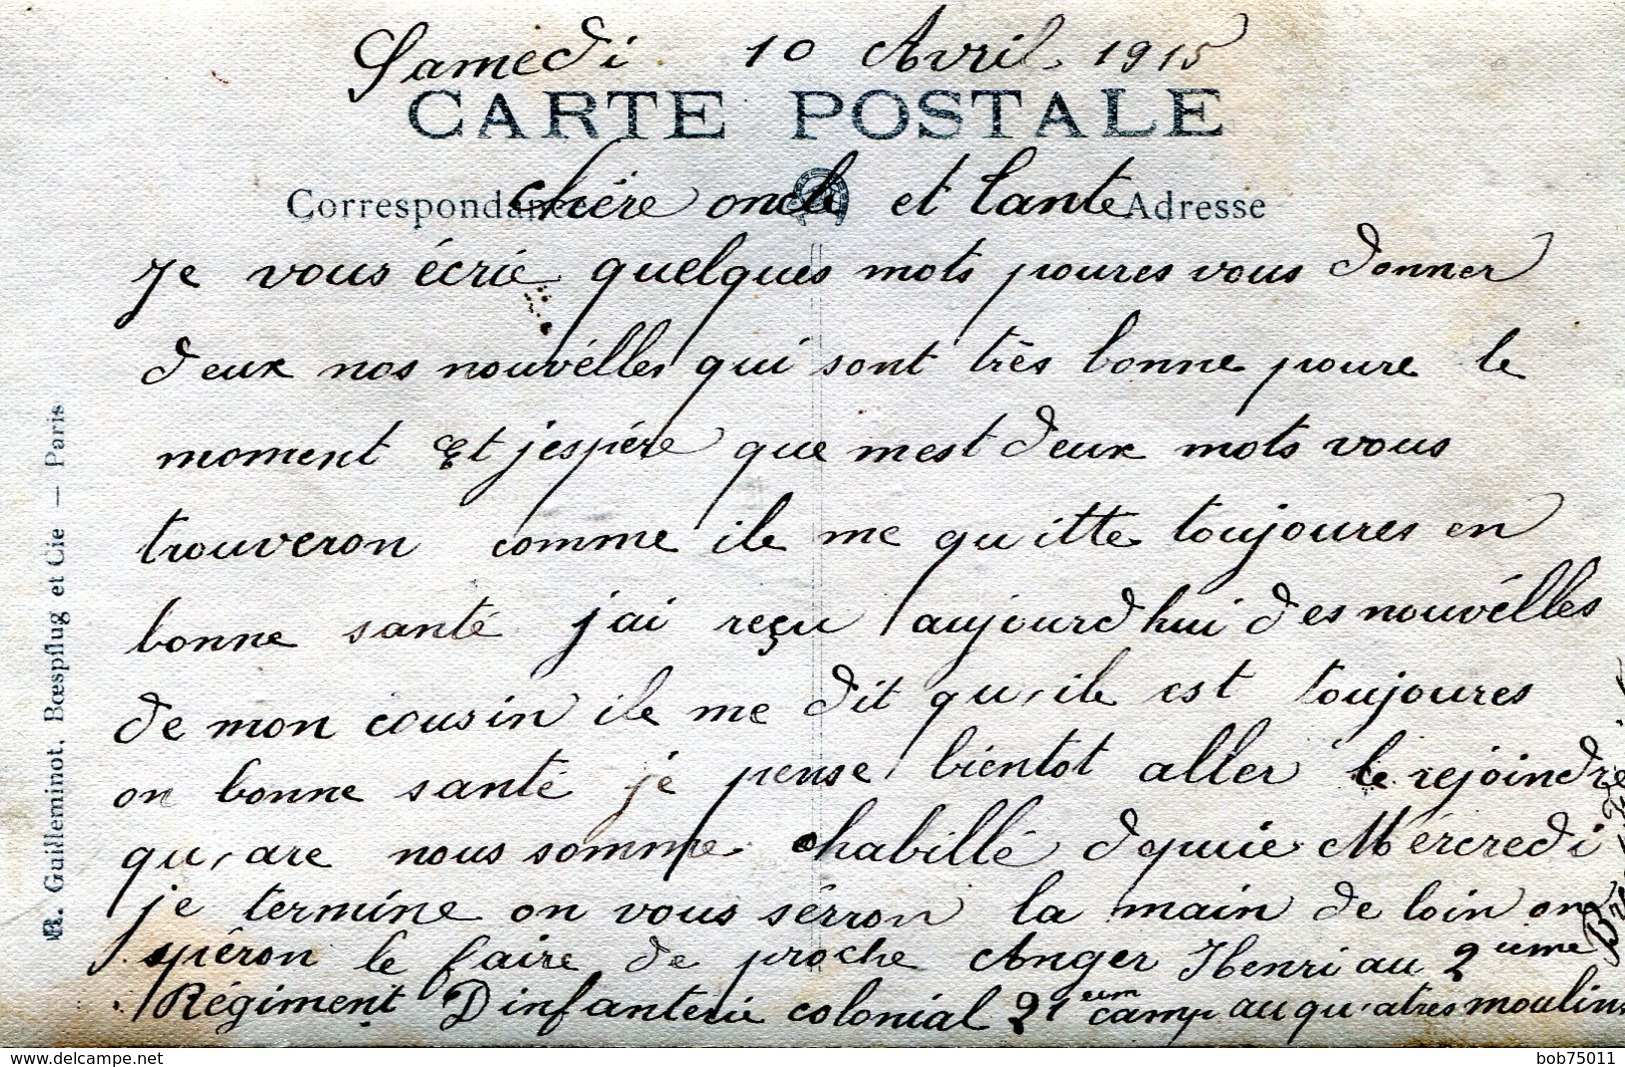 Samedi 10 Avril 1915
CARTE POSTALE
Correspondance Adresse
Chère oncle et tante
Je vous écrie quelques mots poures vous donner
deux nos nouvélles qui sont très bonne poure le
moment Et j'espère que mest deux mots vous
trouveron comme ile me quitte toujoures en
bonne santé j'ai reçu aujourdhui des nouvélles
de mon cousin ile me dit qu'ile est toujoures
on bonne santé je pense bientot aller le rejoindre
qu'are nous somme habillé depuie Mércredi
je termine on vous sérron la main de loin on
spéron le faire de proche Anger Henri au 2uime
Régiment D infanterie colonial 21eum camp au qu'atres moulins
R. Guilleminot, Bœspflug et Cie — Paris
bob75011